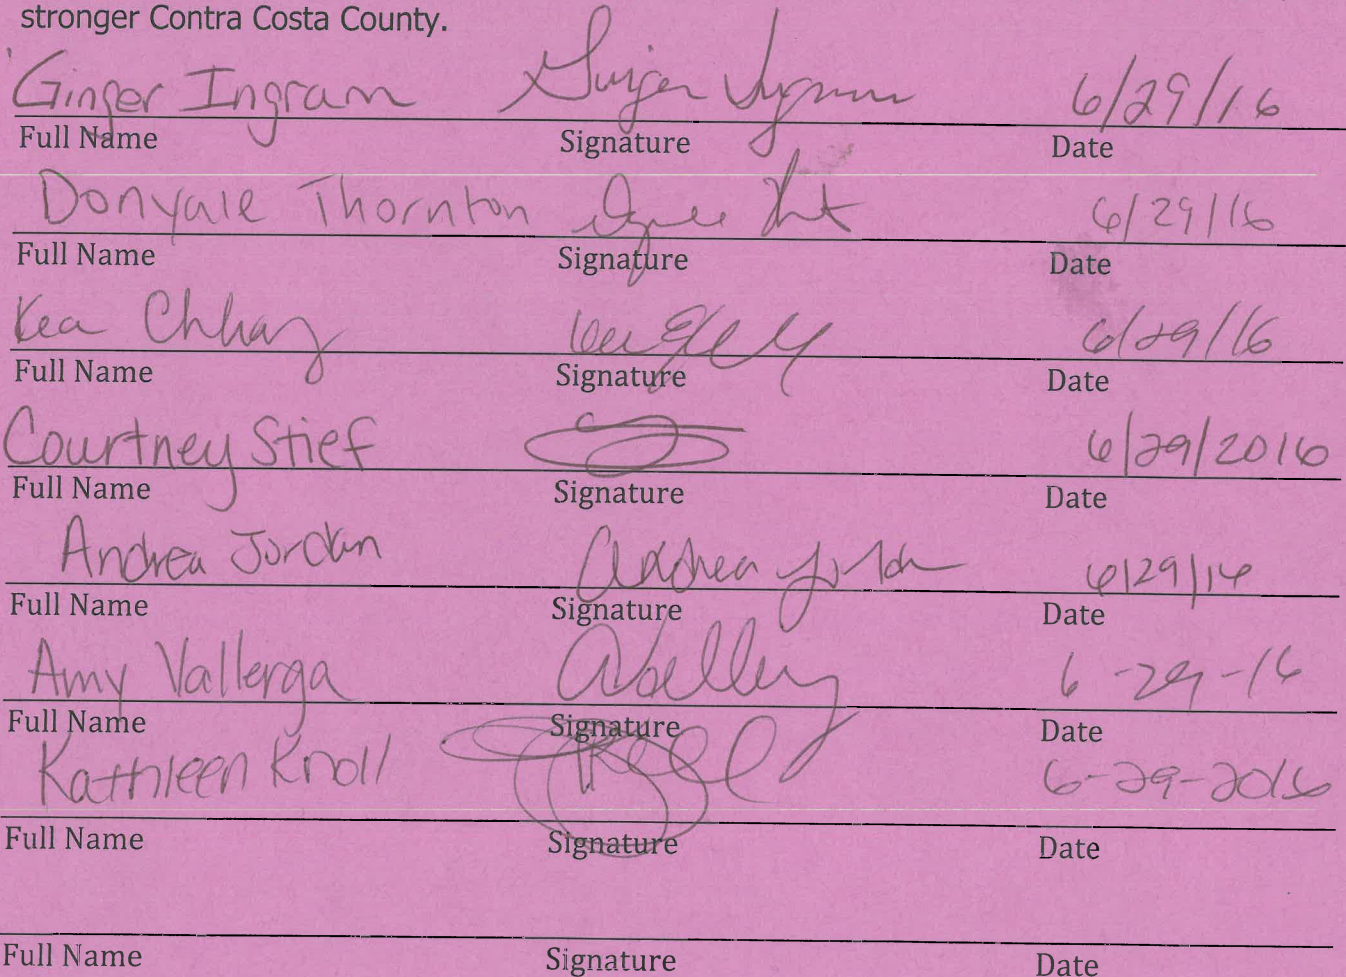 stronger Contra Costa County.
Ginger Ingram Ginger Ingram 6/29/16
Full Name Signature Date
Donyale Thornton 6/29/16
Full Name Signature Date
Kea Chhay 6/29/16
Full Name Signature Date
Courtney Stief 6/29/2016
Full Name Signature Date
Andrea Jordan Andrea Jordan 6/29/16
Full Name Signature Date
Amy Vallerga 6-29-16
Full Name Signature Date
Kathleen Knoll 6-29-2016
Full Name Signature Date
Full Name Signature Date